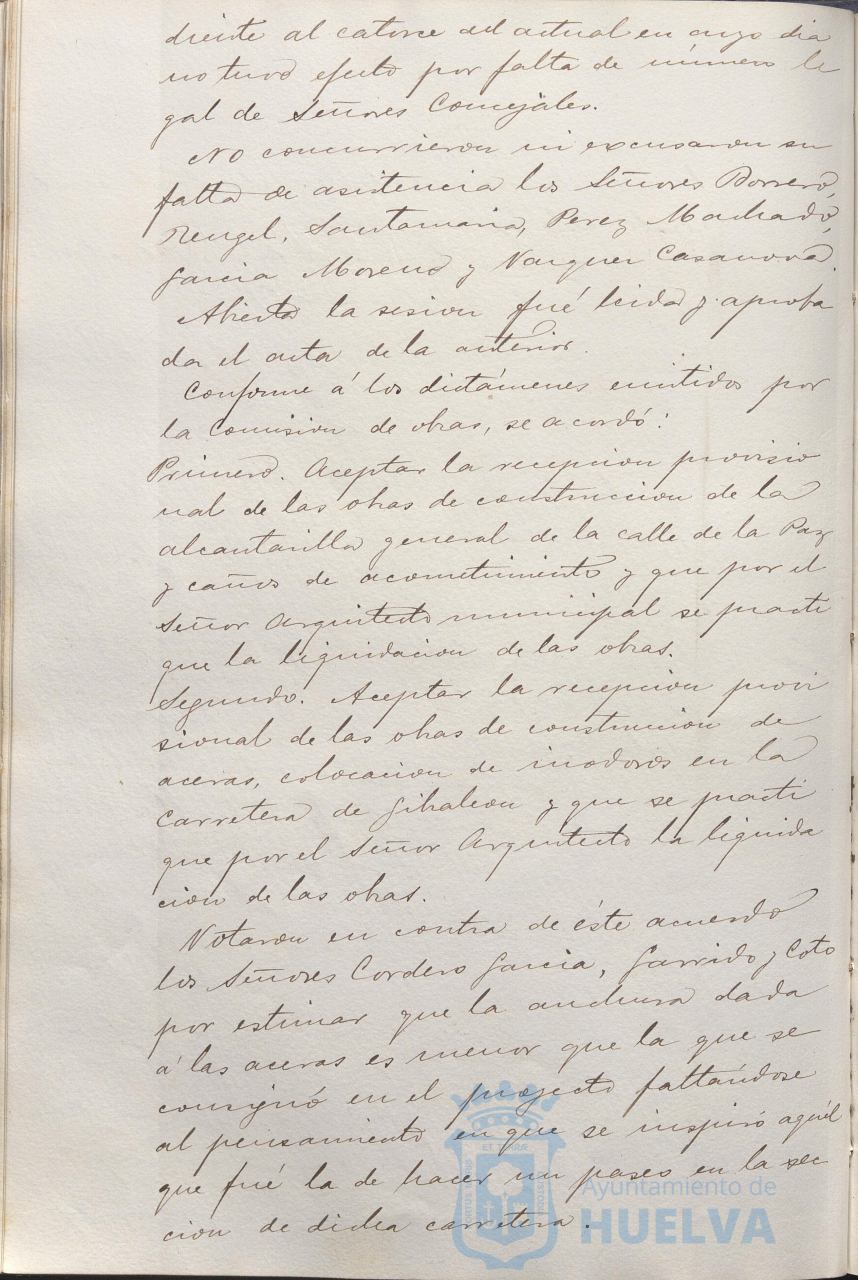 diente al catorce del actual en cuyo dia
no tuvo efecto por falta de número le
gal de Señores Concejales.
No concurrieron ni excusaron su
falta de asistencia los Señores Borrero,
Rengel, Santamaria, Perez Machado,
Garcia Moreno y Vazquez Casanova.
Abierta la sesion fué leida y aproba
da el acta de la anterior.
Conforme á los dictámenes emitidos por
la Comision de obras, se acordó:
Primero. Aceptar la recepcion provisio
nal de las obras de construccion de la
alcantarilla general de la calle de la Paz
y caños de acometimiento y que por el
Señor Arquitecto municipal se practi
que la liquidacion de las obras.
Segundo. Aceptar la recepcion provi
sional de las obras de construccion de
aceras, colocacion de inodoros en la
carretera de Gibraleon y que se practi
que por el Señor Arquitecto la liquida
cion de las obras.
Votaron en contra de éste acuerdo
los Señores Cordero Garcia, Garrido y Coto
por estimar que la anchura dada
á las aceras es menor que la que se
consignó en el proyecto faltándose
al pensamiento en que se inspiró aquél
que fué la de hacer un paseo en la sec
cion de dicha carretera.
Ayuntamiento de
HUELVA